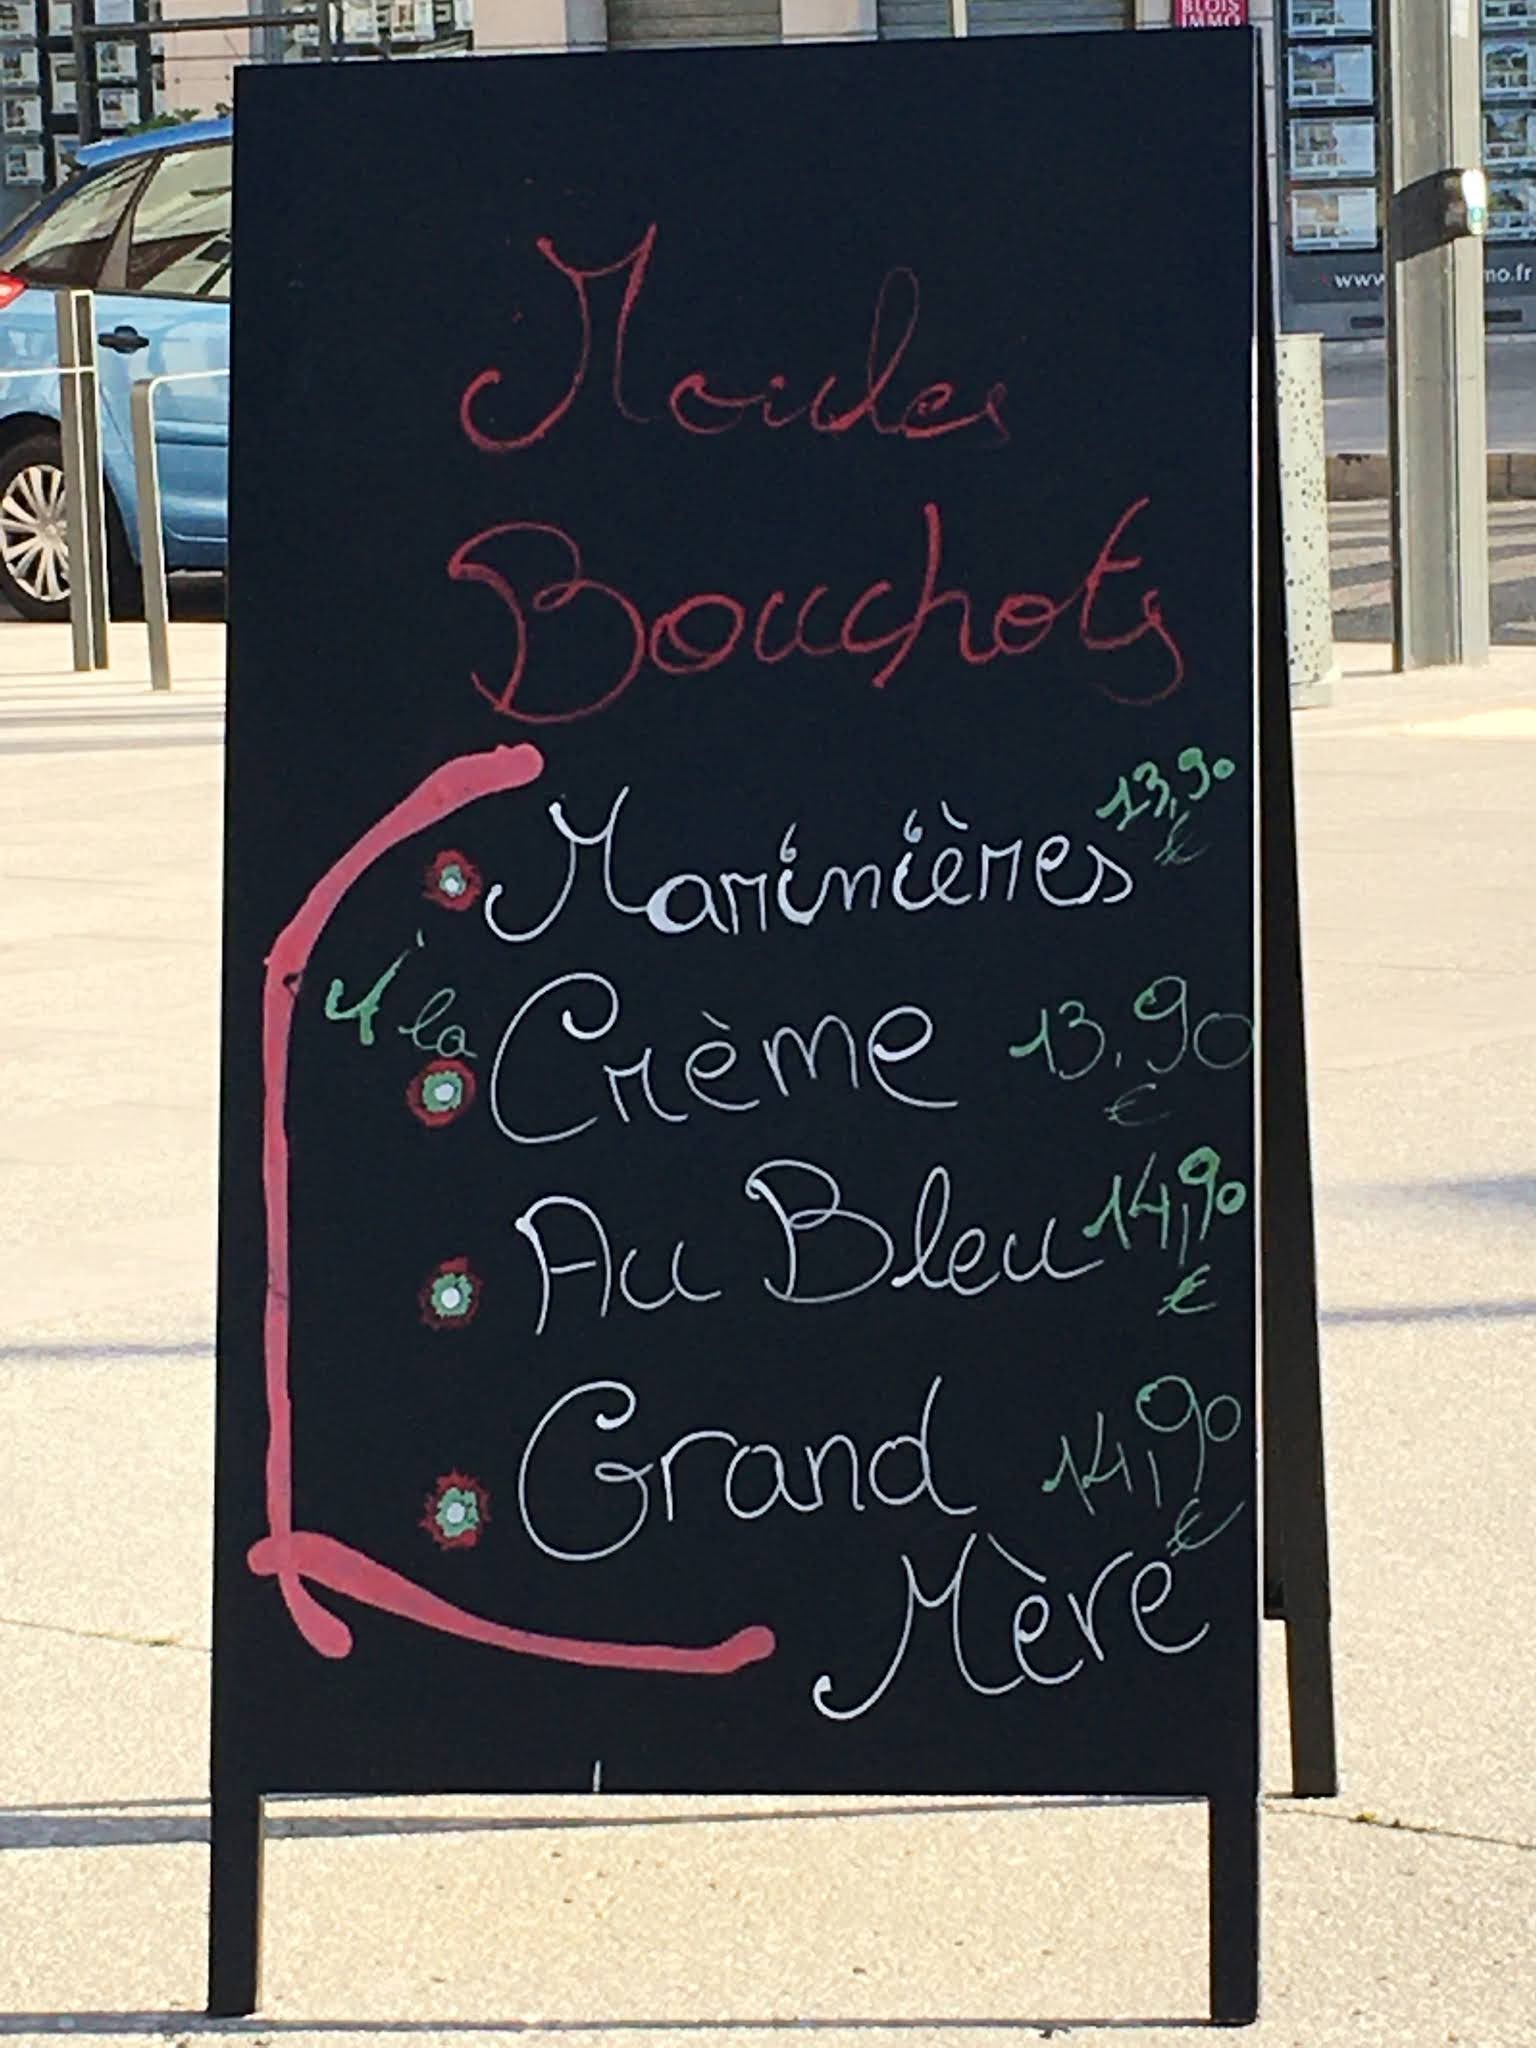 BLOIS
IMMO
www.
mo.fr
Moules
Bouchots
Marinières 13,90 €
A la Crème 13,90 €
Au Bleu 14,90 €
Grand 14,90 €
Mère